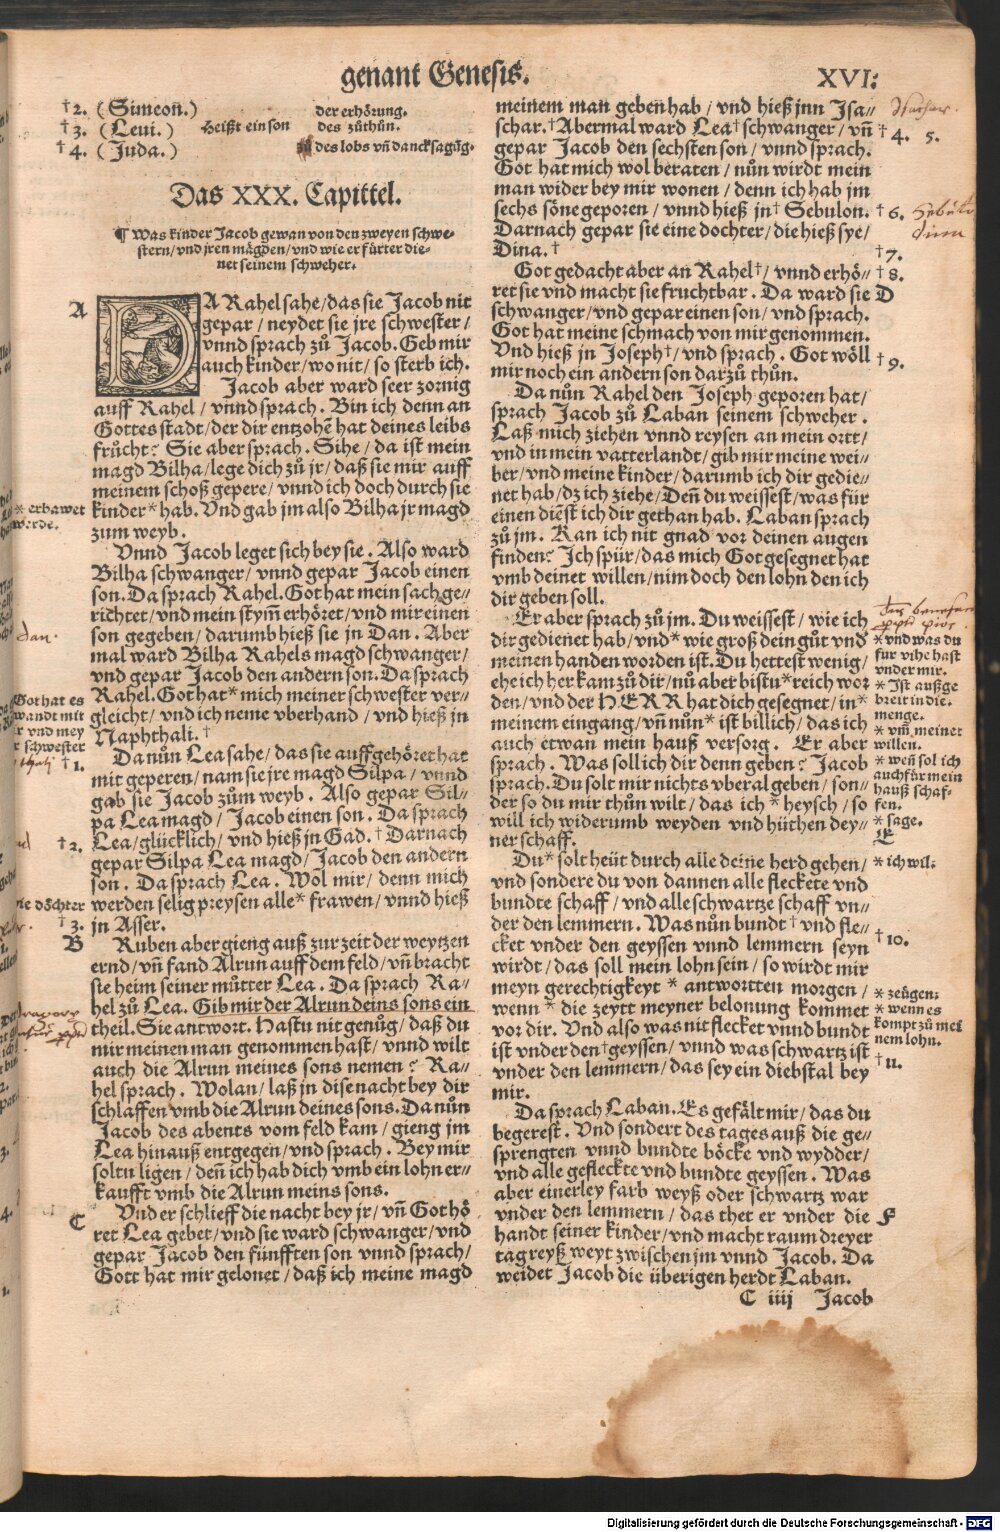 genant Genesis.
XVI:
†2. (Simeon.)
†3. (Leui.)
†4. (Juda.)
Heißt ein son
der erhörung.
des zůthůn.
des lobs vñ dancksagũg.
Das XXX. Capittel.
¶ Was kinder Jacob gewan von den zweyen schwe-
stern/vnd jren mägden/vnd wie er fürter die-
net seinem schweher.
A
DA Rahel sahe/das sie Jacob nit
gepar/neydet sie jre schwester/
vnnd sprach zů Jacob. Geb mir
auch kinder/wo nit/so sterb ich.
Jacob aber ward seer zornig
auff Rahel/vnnd sprach. Bin ich denn an
Gottes stadt/der dir entzohẽ hat deines leibs
frücht? Sie aber sprach. Sihe/da ist mein
magd Bilha/lege dich zů jr/daß sie mir auff
meinem schoß gepere/vnnd ich doch durch sie
kinder* hab. Vnd gab jm also Bilha jr magd
zum weyb.
* erbawet
werde.
Vnnd Jacob leget sich bey sie. Also ward
Bilha schwanger/vnnd gepar Jacob einen
son. Da sprach Rahel. Got hat mein sach ge//
richtet/vnd mein stym̃ erhöret/vnd mir einen
son gegeben/darumb hieß sie jn Dan. Aber
mal ward Bilha Rahels magd schwanger/
vnd gepar Jacob den andern son. Da sprach
Rahel. Got hat* mich meiner schwester ver//
gleicht/vnd ich neme vberhand/vnd hieß jn
Naphthali.†
Dan.
Got hat es
wandt mit
r vnd mey
r schwester
†1.
Da nůn Lea sahe/das sie auffgehöret hat
mit geperen/nam sie jre magd Silpa/vnnd
gab sie Jacob zům weyb. Also gepar Sil//
pa Lea magd/Jacob einen son. Da sprach
Lea/glücklich/vnd hieß jn Gad.† Darnach
gepar Silpa Lea magd/Jacob den andern
son. Da sprach Lea. Wol mir/denn mich
werden selig preysen alle* frawen/vnnd hieß
jn Asser.
†2.
die döchter
†3.
B
Ruben aber gieng auß zur zeit der weytzen
ernd/vñ fand Alrun auff dem feld/vñ bracht
sie heim seiner můtter Lea. Da sprach Ra//
hel zů Lea. Gib mir der Alrun deins sons ein
theil. Sie antwort. Hastu nit genůg/daß du
mir meinen man genommen hast/vnnd wilt
auch die Alrun meines sons nemen? Ra//
hel sprach. Wolan/laß jn dise nacht bey dir
schlaffen vmb die Alrun deines sons. Da nůn
Jacob des abents vom feld kam/gieng jm
Lea hinauß entgegen/vnd sprach. Bey mir
soltu ligen/deñ ich hab dich vmb ein lohn er//
kaufft vmb die Alrun meins sons.
C
Vnd er schlieff die nacht bey jr/vñ Got hö
ret Lea gebet/vnd sie ward schwanger/vnd
gepar Jacob den fünfften son vnnd sprach/
Gott hat mir gelonet/daß ich meine magd
meinem man geben hab/vnd hieß jnn Isa//
schar.† Abermal ward Lea† schwanger/vñ
gepar Jacob den sechsten son/vnnd sprach.
Got hat mich wol beraten/nůn wirdt mein
man wider bey mir wonen/denn ich hab jm
sechs söne geporen/vnnd hieß jn† Sebulon.
Darnach gepar sie eine dochter/die hieß sye/
Dina.†
†4. 5.
†6.
†7.
Got gedacht aber an Rahel†/vnnd erhö//
ret sie vnd macht sie fruchtbar. Da ward sie
schwanger/vnd gepar einen son/vnd sprach.
Got hat meine schmach von mir genommen.
Vnd hieß jn Joseph†/vnd sprach. Got wöll
mir noch ein andern son darzů thůn.
†8.
D
†9.
Da nůn Rahel den Joseph geporen hat/
sprach Jacob zů Laban seinem schweher.
Laß mich ziehen vnnd reysen an mein ortt/
vnd in mein vatterlandt/gib mir meine wei//
ber/vnd meine kinder/darumb ich dir gedie//
net hab/dz ich ziehe/Deñ du weissest/was für
einen diẽst ich dir gethan hab. Laban sprach
zů jm. Kan ich nit gnad vor deinen augen
finden? Ich spür/das mich Got gesegnet hat
vmb deinet willen/nim doch den lohn den ich
dir geben soll.
Er aber sprach zů jm. Du weissest/wie ich
dir gedienet hab/vnd* wie groß dein gůt vnd
meinen handen worden ist. Du hettest wenig/
ehe ich her kam zů dir/nů aber bistu* reich wor
den/vnd der HERR hat dich gesegnet/in*
meinem eingang/vñ nůn* ist billich/das ich
auch etwan mein hauß versorg. Er aber
sprach. Was soll ich dir denn geben? Jacob
sprach. Du solt mir nichts vberal geben/son//
der so du mir thůn wilt/das ich* heysch/so
will ich widerumb weyden vnd hüthen dey//
ner schaff.
* vnd was du
für vihe hast
vnder mir.
* Ist außge
breit in die
menge.
* vm̃ meinet
willen.
* weñ sol ich
auch für mein
hauß schaf-
fen.
* sage.
E
Du* solt heüt durch alle deine herd gehen/
vnd sondere du von dannen alle fleckete vnd
bundte schaff/vnd alle schwartze schaff vn//
der den lemmern. Was nůn bundt† vnd fle//
cket vnder den geyssen vnnd lemmern seyn
wirdt/das soll mein lohn sein/so wirdt mir
meyn gerechtigkeyt* antwortten morgen/
wenn* die zeytt meyner belonung kommet
vor dir. Vnd also was nit flecket vnnd bundt
ist vnder den† geyssen/vnnd was schwartz ist
vnder den lemmern/das sey ein diebstal bey
mir.
* ich wil.
†10.
* zeügen.
* wenn es
kompt zů mei
nem lohn.
†11.
Da sprach Laban. Es gefält mir/das du
begerest. Vnd sondert des tages auß die ge//
sprengten vnnd bundte böcke vnd wydder/
vnd alle gefleckte vnd bundte geyssen. Was
aber einerley farb weyß oder schwartz war
vnder den lemmern/das thet er vnder die
handt seiner kinder/vnd macht raum dreyer
tagreyß weyt zwischen jm vnnd Jacob. Da
weidet Jacob die überigen herdt Laban.
F
C iiij Jacob
Digitalisierung gefördert durch die Deutsche Forschungsgemeinschaft - DFG